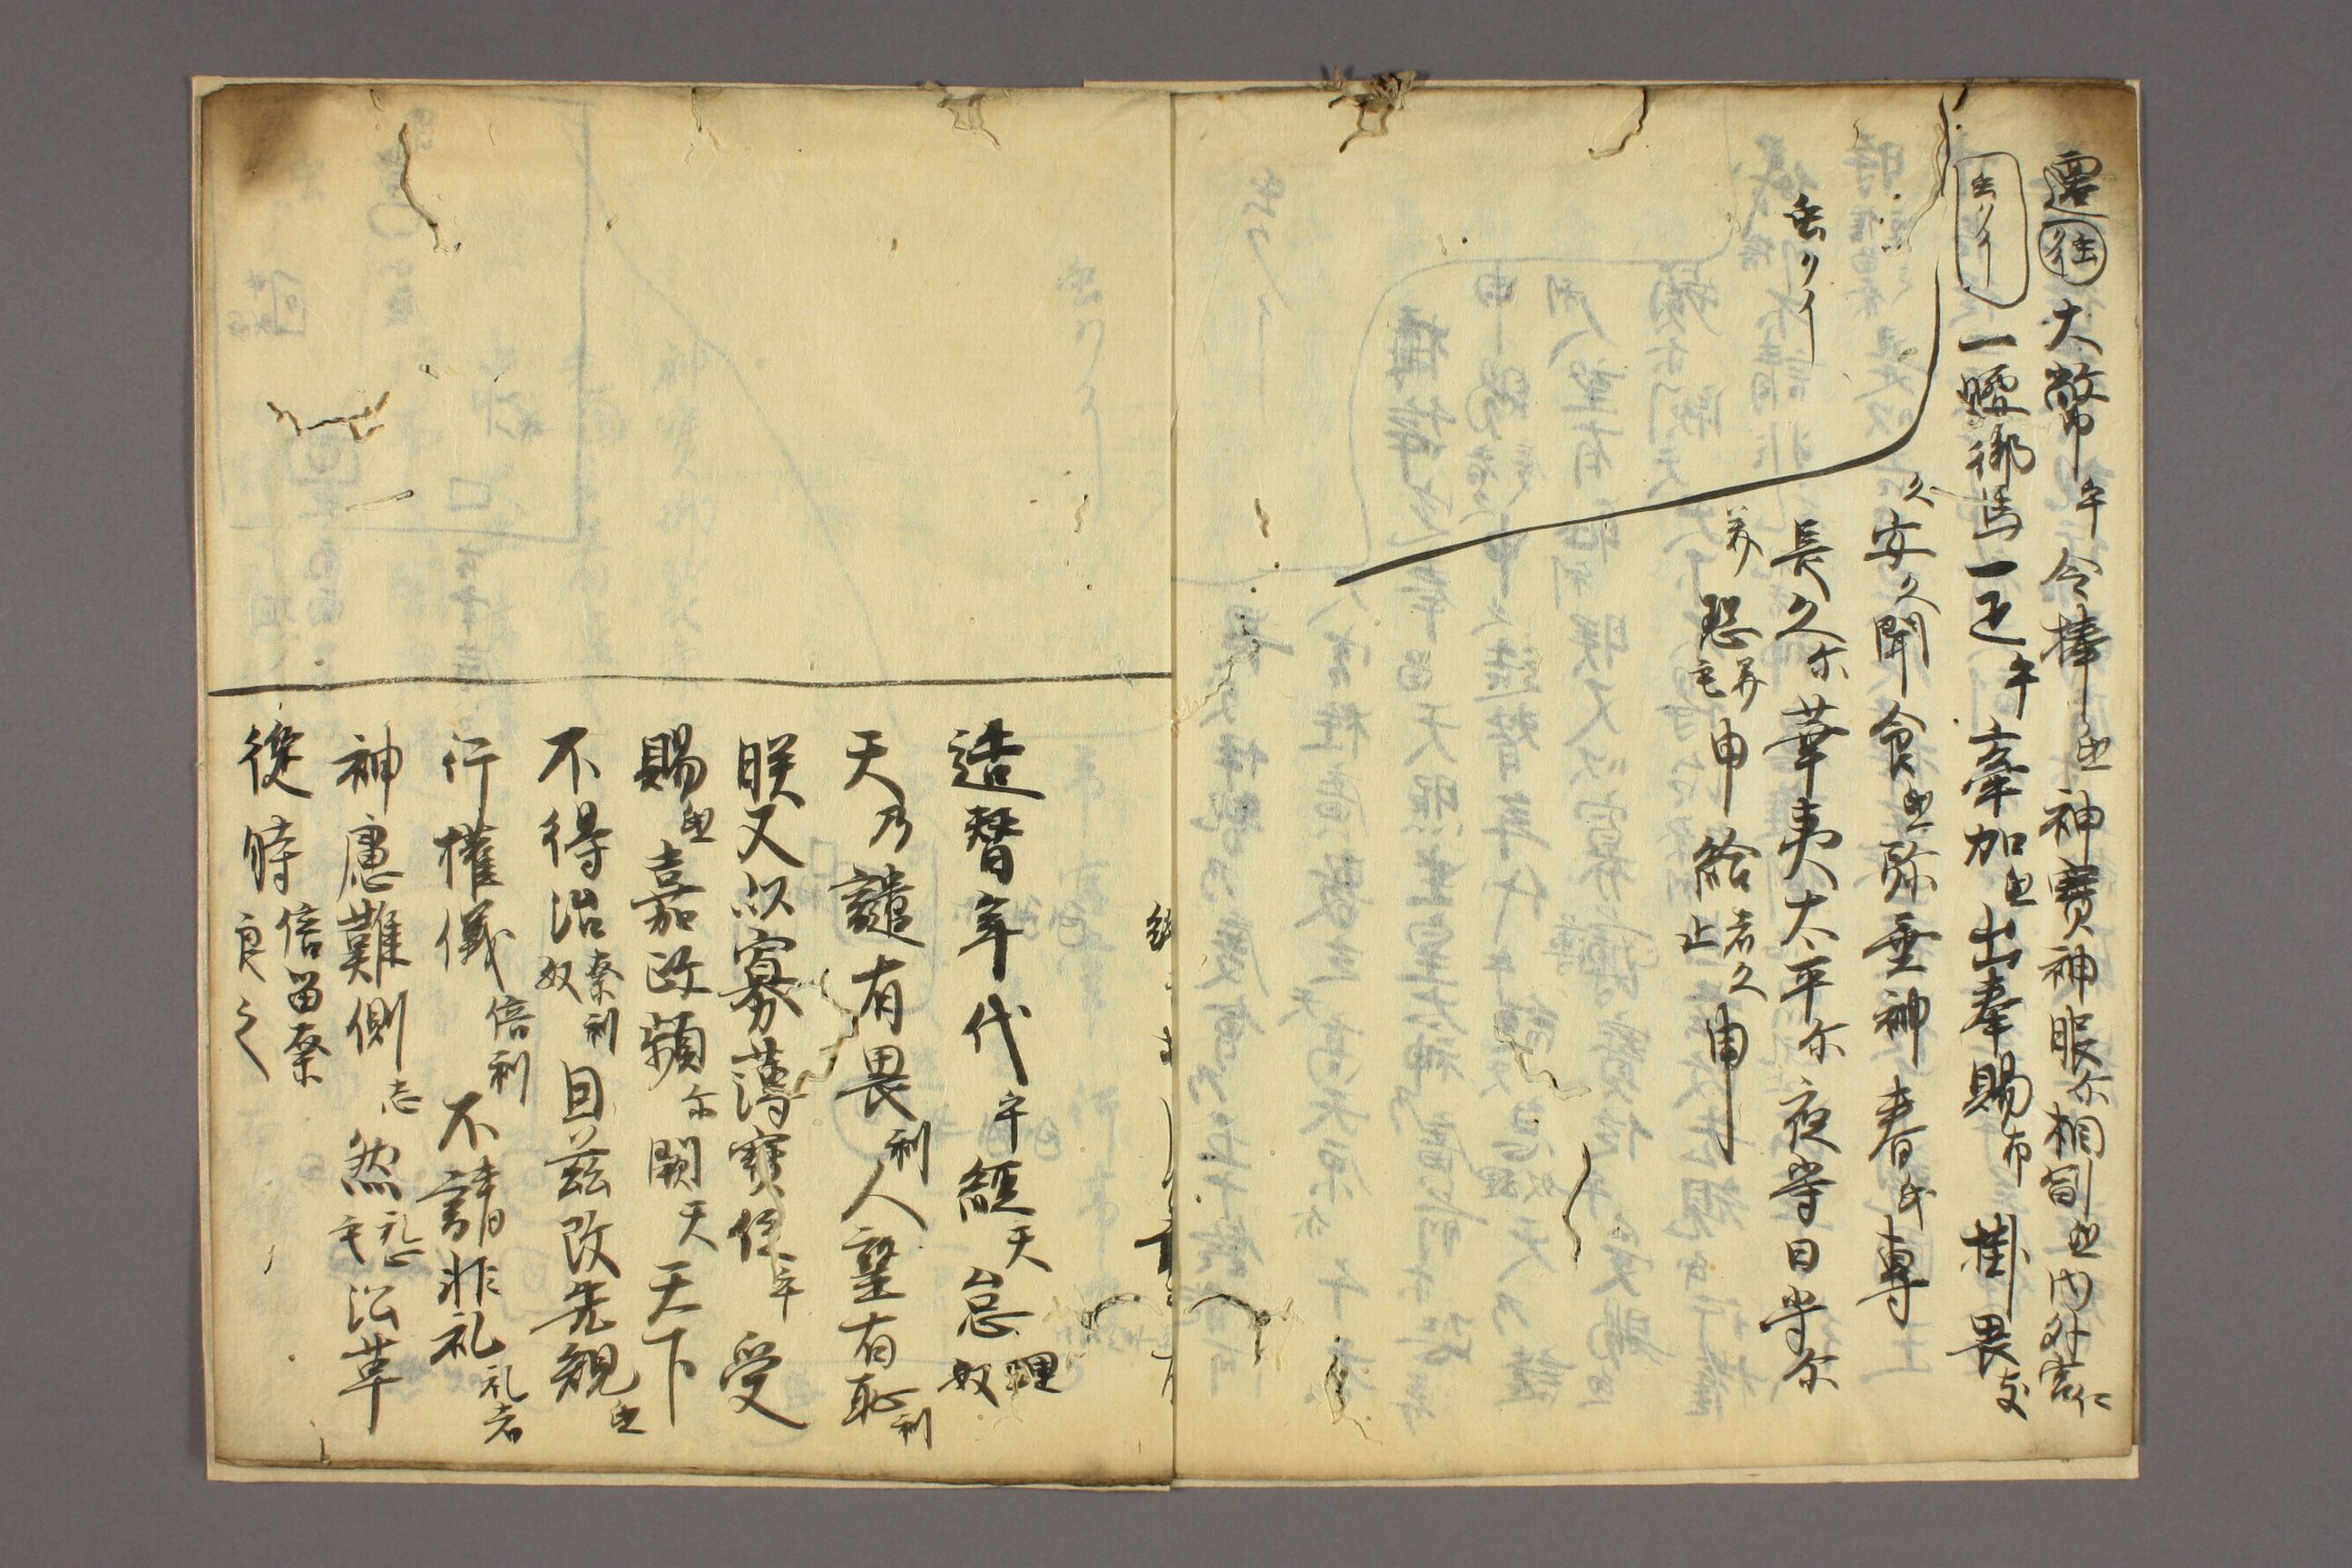 還往大幣乎令捧氐神寶神服尓相副氐内外宮仁
虫クイ一疋乎牽加氐出奉賜布掛畏支
久安久聞食氐弥垂神眷氐専
虫クイ
長久尓華夷太平尓夜守日守尓
美恐美毛申給者久止申
造替年代乎経天怠理奴
天乃譴有畏利人望有恥利
朕又以寡薄寶位乎受
賜氐嘉政蘋尓闕天天下
不得治奈利奴因茲改先規氐
行權儀倍利不請非礼礼者
神慮難側志然礼止毛沿革
從時倍留奈良之